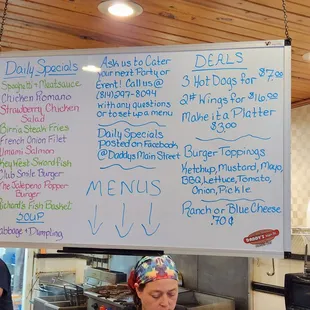 Daily Specials
Spaghetti + Meatsauce
Chicken Romano
Strawberry Chicken
Salad
Birria Steak Fries
French Onion Filet
Umami Salmon
Key West Swordfish
Club Smile Burger
The Jalepeno Popper
Burger
Richard's Fish Basket
SOUP
Cabbage + Dumpling
Ask us to Cater
your next Party or
Event! Call us @
(814)597-8094
with any questions
or to set up a menu
Daily Specials
Posted on Facebook
@Daddys Main Street
MENUS
DEALS
3 Hot Dogs for $7.00
2# Wings for $16.00
Make it a Platter
$3.00
Burger Toppings
Ketchup, Mustard, Mayo,
BBQ, Lettuce, Tomato,
Onion, Pickle
Ranch or Blue Cheese
.70¢
DADDY'S